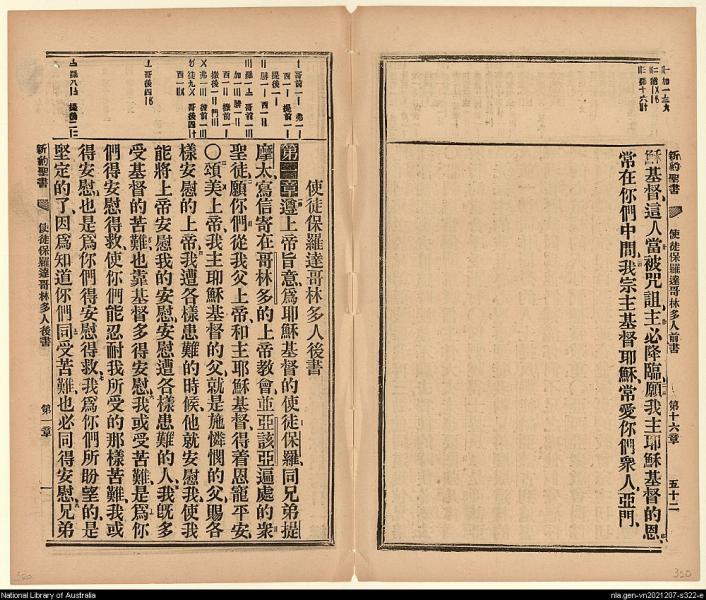 新約聖書
使徒保羅達哥林多人前書
第十六章
五十二
穌基督、這人當被咒詛、主必降臨、願我主耶穌基督的恩、
常在你們中間、我宗主基督耶穌、常愛你們衆人、亞們、
使徒保羅達哥林多人後書
第一章遵上帝旨意、爲耶穌基督的使徒保羅、同兄弟提
摩太、寫信寄在哥林多的上帝教會、並亞該亞遍處的衆
聖徒、願你們從我父上帝、和主耶穌基督、得着恩寵平安、
〇頌美上帝我主耶穌基督的父、就是施憐憫的父、賜各
樣安慰的上帝、我遭各樣患難的時候、他就安慰我、使我
能將上帝安慰我的安慰、安慰遭各樣患難的人、我旣多
受基督的苦難、也靠基督多得安慰、我或受苦難、是爲你
們得安慰得救、使你們能忍耐我所受的那樣苦難、我或
得安慰、也是爲你們得安慰得救、我爲你們所盼望的、是
堅定的了、因爲知道你們同受苦難、也必同得安慰、兄弟
新約聖書
使徒保羅達哥林多人後書
第一章
一
320
320
National Library of Australia
nla.gen-vn2021207-s322-e